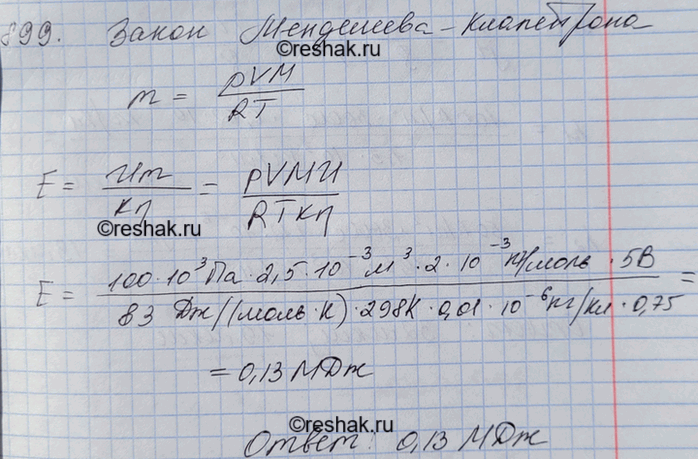 899. Закон Менделеева-Клапейрона
©reshak.ru
m = pVM / RT
E = Um / кη = pVMU / RTкη
©reshak.ru
E = 100·10³Па·2,5·10⁻³м³·2·10⁻³кг/моль·5В / 83 Дж/(моль·К)·298К·0,01·10⁻⁶кг/кл·0,75 =
= 0,13 МДж
©reshak.ru
Ответ: 0,13 МДж